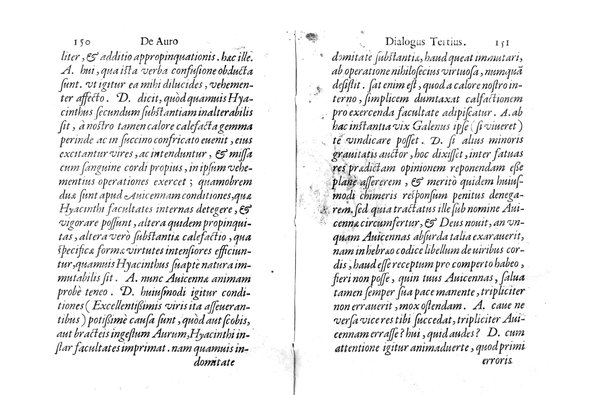 150 De Auro
liter, & additio appropinquationis. hac ille.
A. hui, qua ista verba confusione obducta
sunt. vt igitur ea mihi dilucides, vehemen-
ter affecto. D. dicit, quòd quamuis Hya-
cinthus secundum substantiam inalterabilis
sit, à nostro tamen calore calefacta gemma
perinde ac in succino confricato euenit, eius
excitantur vires, ac intenduntur, & missa
cum sanguine cordi propius, in ipsum vehe-
mentius operationes exercet; quamobrem
duæ sunt apud Auicennam conditiones, quæ
Hyacinthi facultates internas detegere, &
vigorare possunt, altera quidem propinqui-
tas, altera verò substantiæ calefactio, qua
specificæ formæ virtutes intensiores efficiun-
tur, quamuis Hyacinthus suapte natura im-
mutabilis sit. A. nunc Auicennæ animam
probè teneo. D. huiusmodi igitur condi-
tiones (Excellentissimis viris ita asseueran-
tibus) potissimè causa sunt, quòd aut scobis,
aut bracteis ingestum Aurum, Hyacinthi in-
star facultates imprimat. nam quamuis in-
domitate
Dialogus Tertius. 151
domitate substantiæ, haud queat imutari,
ab operatione nihilosecius virtuosa, nunquã
desistit. sat enim est, quod a calore nostro in-
terno, simplicem dumtaxat calfactionem
pro exercenda facultate adipiscatur. A. ab
hac instantia vix Galenus ipse (si viueret)
te vindicare posset. D. si alius minoris
grauitatis auctor, hoc dixisset, inter fatuas
res prædictam opinionem reponendam esse
planè assererem, & meritò quidem huius-
modi chimeris responsum penitus denega-
rem, sed quia tractatus ille sub nomine Aui-
cennæ circumfertur, & Deus nouit, an vn-
quam Auicennas absurda talia exarauerit,
nam in hebræo codice libellum de uiribus cor-
dis, haud esse receptum pro comperto habeo,
fieri non posse, quin tuus Auicennas, salua
tamen semper sua pace manente, tripliciter
non errauerit, mox ostendam. A. caue ne
versa vice res tibi succedat, tripliciter Aui-
cennam errasse? hui, quid audes? D. cum
attentione igitur animaduerte, quod primi
erroris